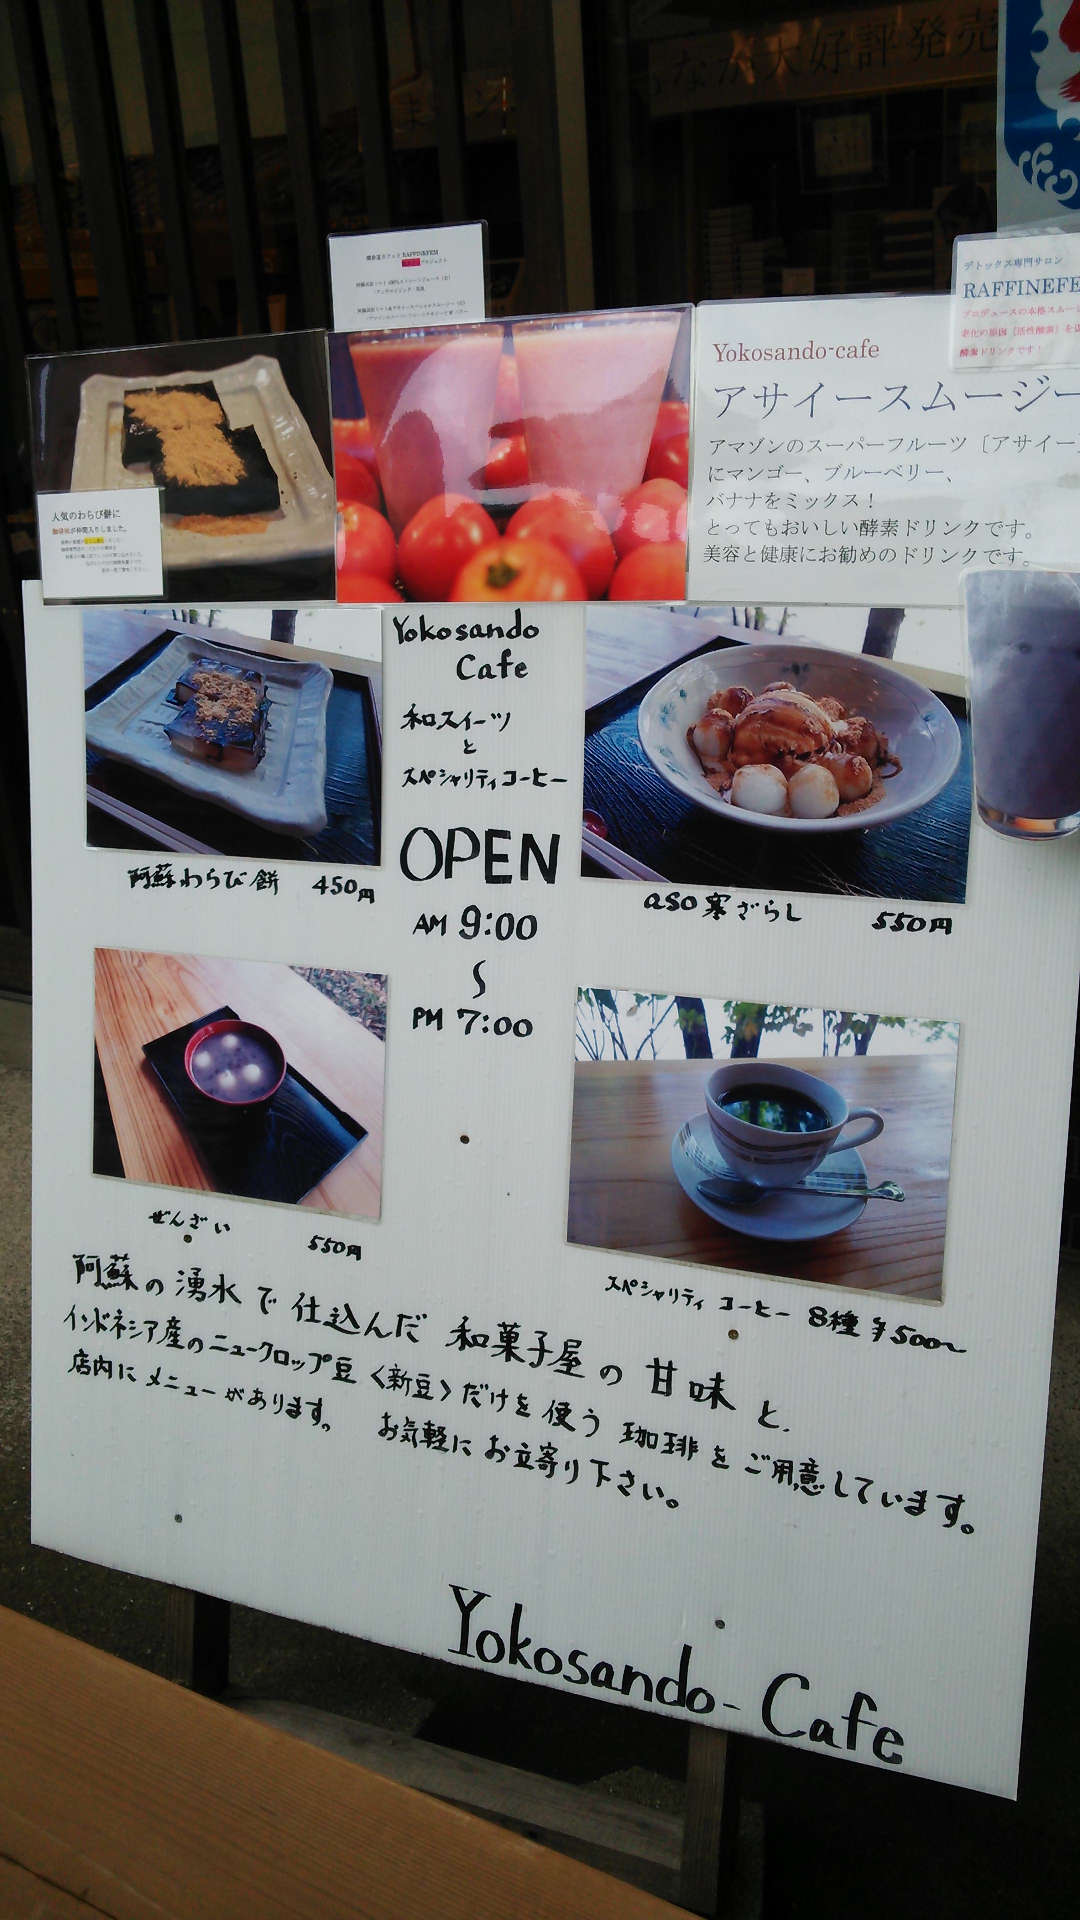 なが大好評発売
デトックス専門サロン
RAFFINEFE
プロデュースの本格スムー
老化の原因〔活性酸素〕を
酵素ドリンクです！
Yokosando-cafe
アサイースムージー
アマゾンのスーパーフルーツ〔アサイー
にマンゴー、ブルーベリー、
バナナをミックス！
とってもおいしい酵素ドリンクです。
美容と健康にお勧めのドリンクです。
人気のわらび餅に
珈琲味が仲間入りしました。
Yokosando
Cafe
和スイーツ
と
スペシャリティコーヒー
OPEN
AM 9:00
〜
PM 7:00
阿蘇わらび餅 450円
aso寒ざらし 550円
ぜんざい 550円
スペシャリティ コーヒー 8種 ¥500〜
阿蘇の湧水で仕込んだ 和菓子屋の甘味と、
インドネシア産のニュークロップ豆〈新豆〉だけを使う珈琲をご用意しています。
店内にメニューがあります。 お気軽にお立寄り下さい。
Yokosando-Cafe